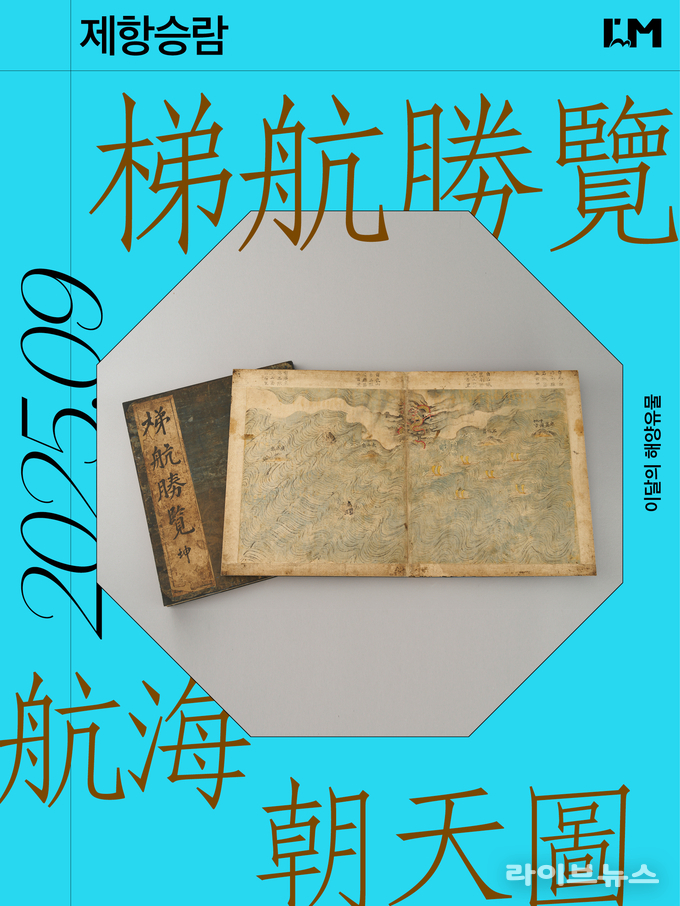 제항승람
梯航勝覽
2025.09
이달의 해양유물
梯航勝覽 坤
航海
朝天圖
라이브뉴스